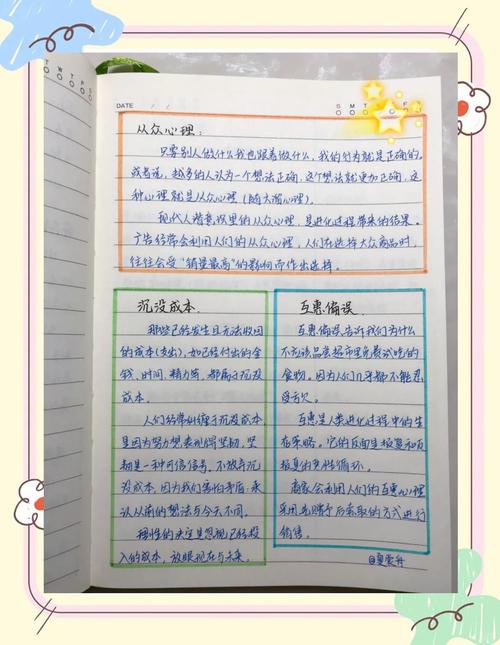 T W T F S
DATE
S M T W T F S
从众心理：
只要别人做什么我也跟着做什么，我的行为就是正确的。
或者说，越多的人认为一个想法正确，这个想法就更加正确，这
种心理就是从众心理（随大溜心理）。
现代人潜意识里的从众心理，是进化过程带来的结果。
广告经常会利用人们的从众心理，人们在选择大众商品时，
往往会受“销量最高”的影响而作出选择。
沉没成本.
那些已经发生且无法收回
的成本(支出)，如已经付出的金
钱、时间、精力等，都属于沉没
成本.
人们经常纠缠于沉没成本，
是因为努力想表现得坚韧，坚
韧是一种可信信号。不放弃沉
没成本，因为我们害怕矛盾：承
认从前的想法与今天不同。
理性的决定是忽视已经投
入的成本，放眼现在与未来。
互惠偏误.
互惠偏误告诉我们为什么
不应该品尝超市里免费试吃的
食物。因为人们几乎都不能忍
受亏欠。
互惠是人类进化过程中的生
存策略。它的反面是报复和反
报复的恶性循环。
商家会利用人们的互惠心理
采用先赠予后索取的方式进行
销售。